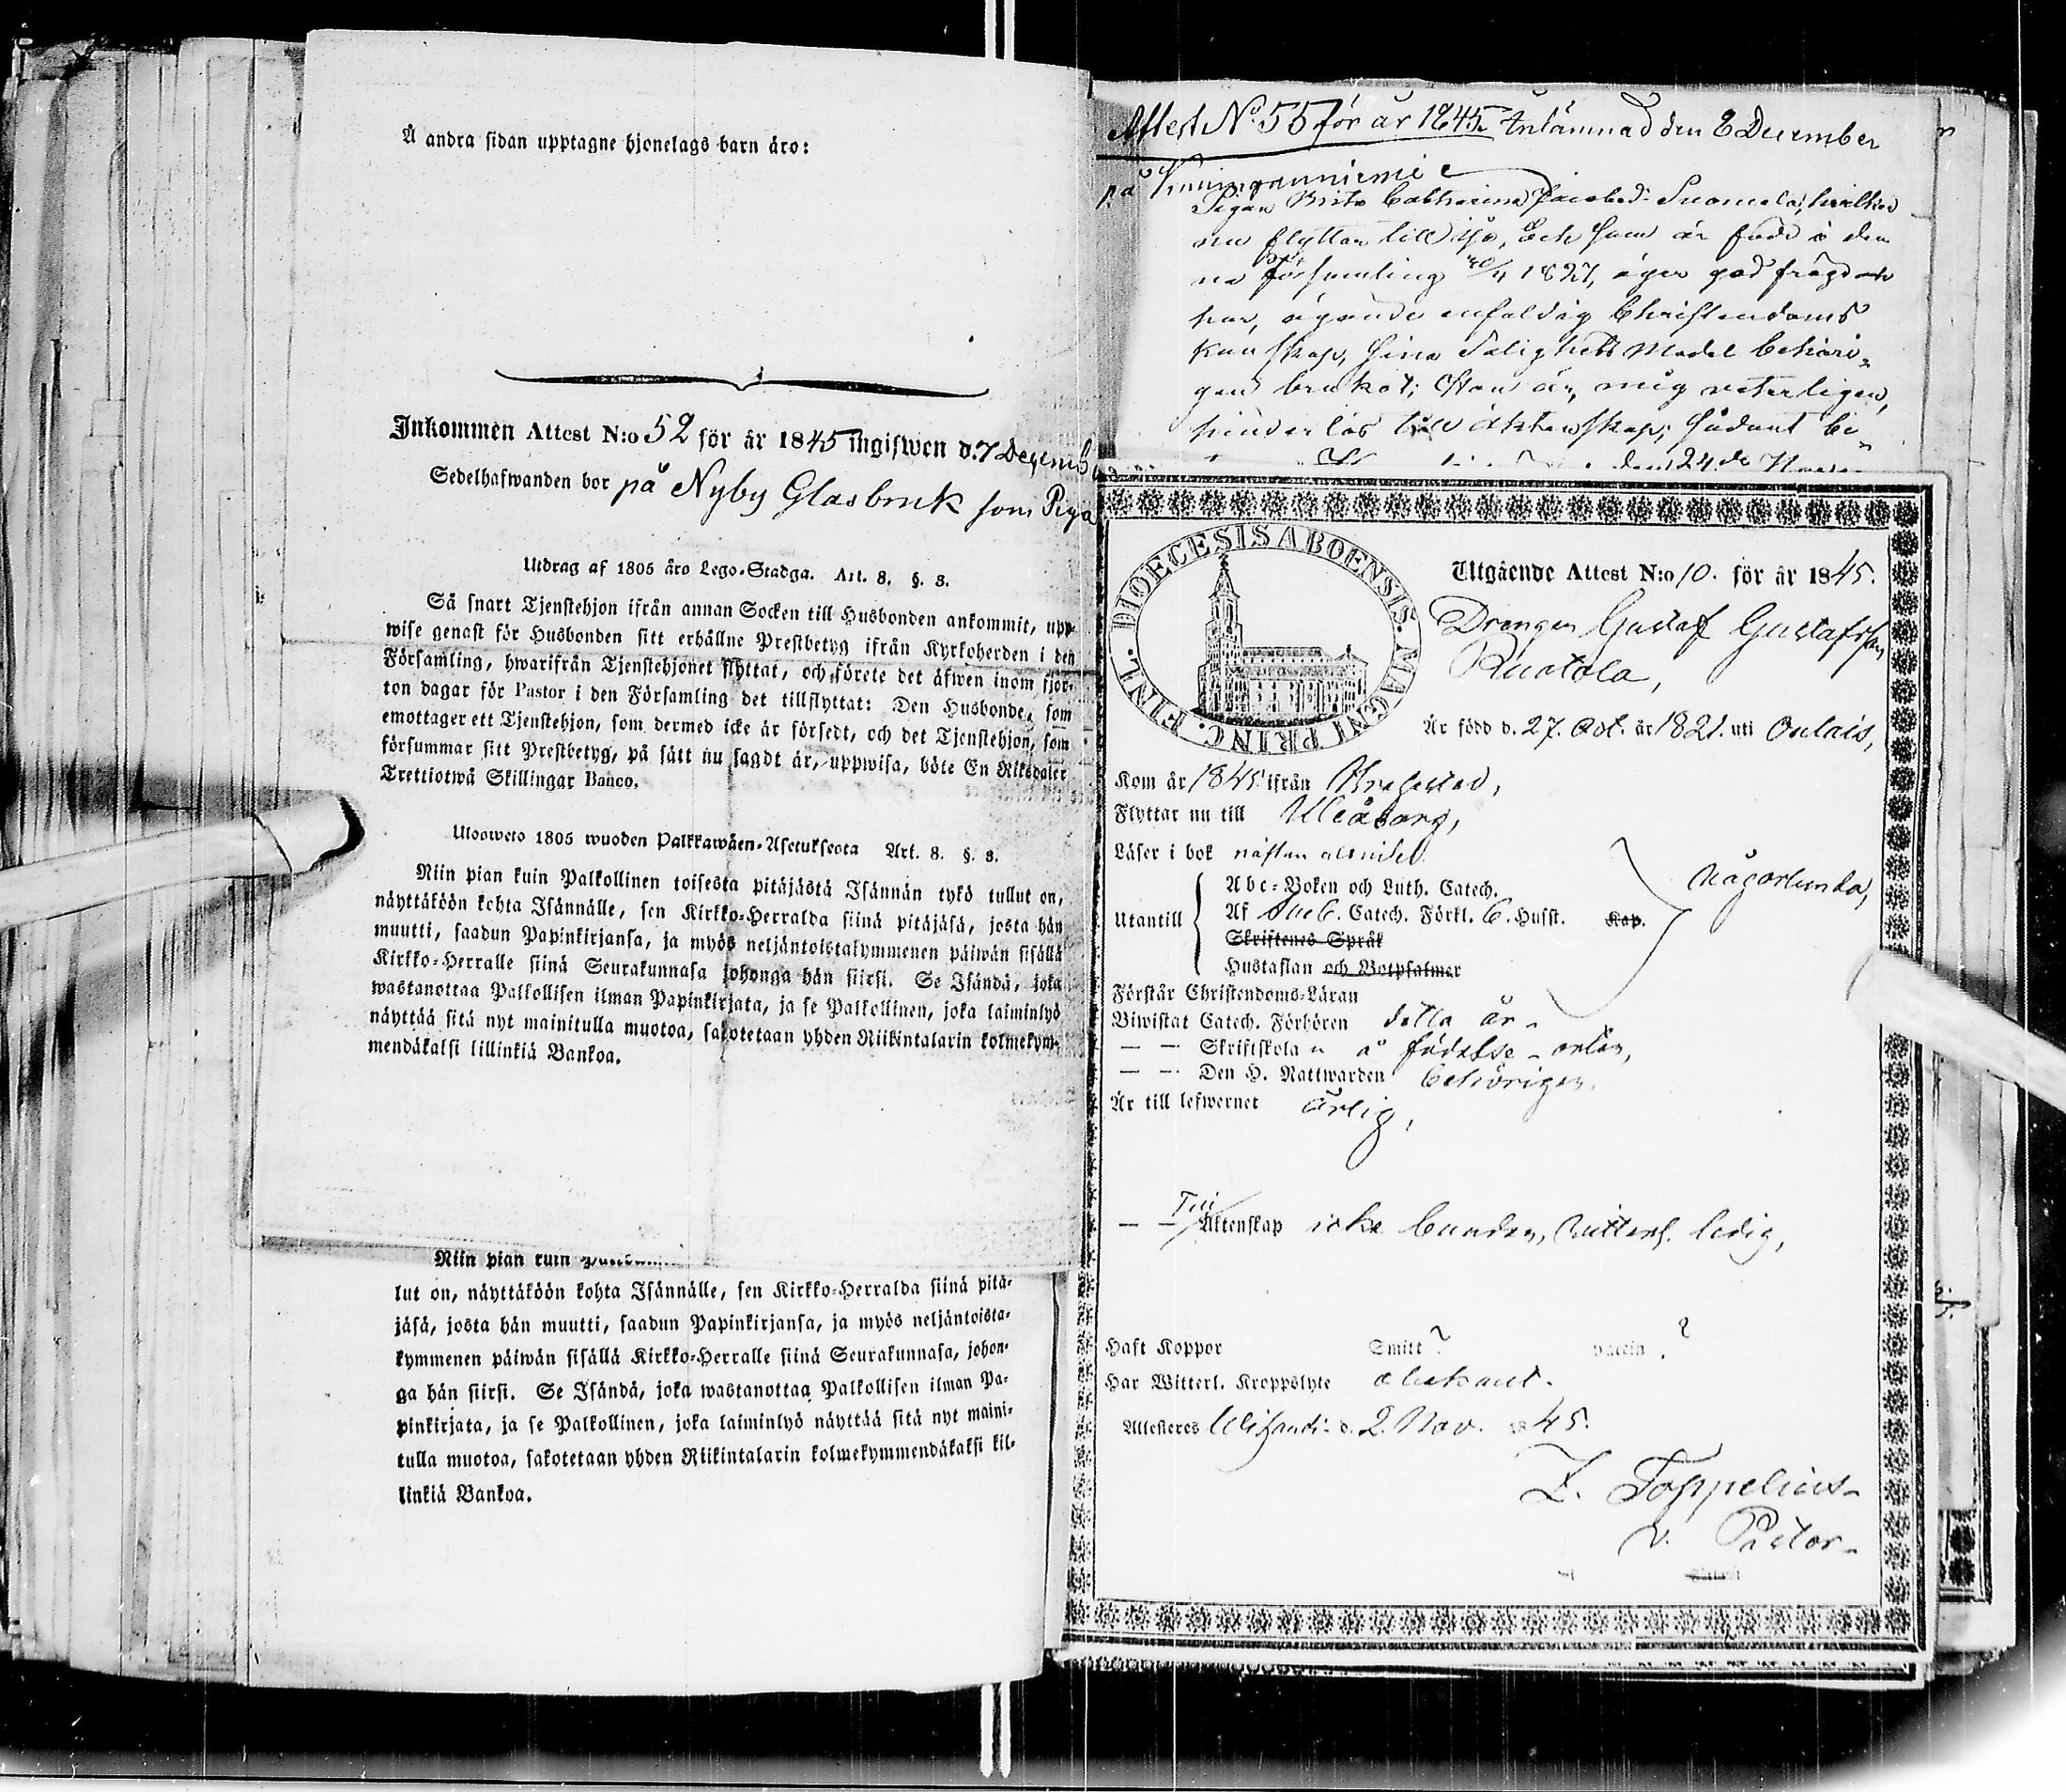 Å andra sidan upptagne hjonelags barn äro:
Inkommen Attest N:o 52 för år 1845 ingifwen d. 7 Decemb
Sedelhafwanden bor på Nyby Glasbruk som Piga
Utdrag af 1805 åro Lego-Stadga. Art. 8. §. 8.
Så snart Tjenstehjon ifrån annan Socken till Husbonden ankommit, upp-
wise genast för Husbonden sitt erhållne Prestbetyg ifrån Kyrkoherden i den
Församling, hwarifrån Tjenstehjonet flyttat, och förete det äfwen inom fjor-
ton dagar för Pastor i den Församling det tillflyttat: Den Husbonde, som
emottager ett Tjenstehjon, som dermed icke är försedt, och det Tjenstehjon, som
försummar sitt Prestbetyg, på sätt nu sagdt är, uppwisa, böte En Riksdaler
Trettiotwå Skillingar Banco.
Ulosweto 1805 wuoden Palkkawäen-Asetuksesta Art. 8. §. 8.
Niin pian kuin Palkollinen toisesta pitäjästä Isännän tykö tullut on,
näyttäköön kohta Isännälle, sen Kirkko-Herralda siinä pitäjäsä, josta hän
muutti, saadun Papinkirjansa, ja myös neljäntoistakymmenen päiwän sisällä
Kirkko-Herralle siinä Seurakunnasa johonga hän siirsi. Se Isändä, joka
wastanottaa Palkollisen ilman Papinkirjata, ja se Palkollinen, joka laiminlyö
näyttää sitä nyt mainitulla muotoa, sakotetaan yhden Riikintalarin kolmekym-
mendäkaksi lillinkiä Bankoa.
Niin pian kuin
lut on, näyttäköön kohta Isännälle, sen Kirkko-Herralda siinä pitä-
jäsä, josta hän muutti, saadun Papinkirjansa, ja myös neljäntoista-
kymmenen päiwän sisällä Kirkko-Herralle siinä Seurakunnasa, johon-
ga hän siirsi. Se Isändä, joka wastanottaa Palkollisen ilman Pa-
pinkirjata, ja se Palkollinen, joka laiminlyö näyttää sitä nyt maini-
tulla muotoa, sakotetaan yhden Riikintalarin kolmekymmendäkaksi kil-
linkiä Bankoa.
Attest No 55 för år 1845 Inlämnad den 8 December
på
Pigan Brita Catharina Jacobsd: Suomela, hvilken
nu flyttar till Ijo, Och som är född i den
na församling 1827, äger god frägd och
har, ägande enfaldig Christendoms
kunskap, sina Salighets Medel behöri-
gen brukat; Hon är, mig veterligen,
hinderlös till äktenskap; sådant be-
den 24de
DIOECESIS ABOENSIS. MAGNI PRINC. FINL.
Utgående Attest N:o 10. för år 1845.
Drengen Gustaf Gustafsson
Ruotola,
Är född d. 27. Oct. år 1821. uti Oulais,
Kom år 1845 ifrån
Flyttar nu till Uleåborg,
Läser i bok nästan
Utantill
Abc-Boken och Luth. Catech.
Af Sveb. Catech. Förkl. 6. Husst. Kap.
Skriftenes Språk
Hustaflan och Botpsalmer
någorlunda,
Förstår Christendoms-Läran
Biwistat Catech. Förhören detta år.
— — Skriftskola å födelse-orten,
— — Den H. Nattwarden behörigen.
Är till lefwernet ärlig,
— — Till Äktenskap icke bunden, vitterl. ledig,
Haft Koppor Smitt ? Vaccin ?
Har Witterl. Kroppslyte obekant.
Attesteres d. 2. Nov. 1845.
Z. Toppelius
v. Pastor